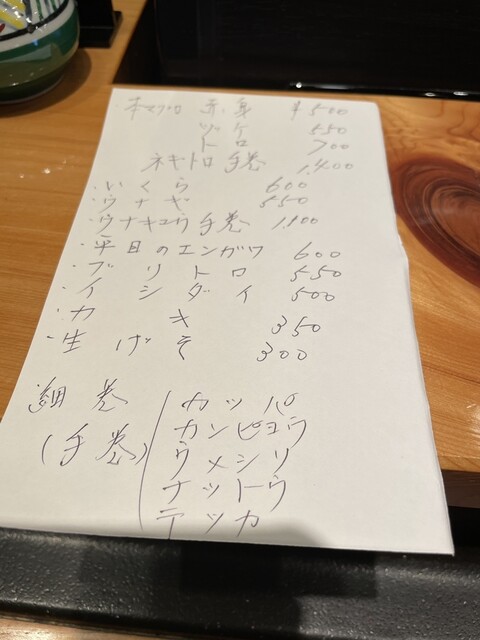 ・本マグロ 赤身 ¥500
ヅケ 550
トロ 700
ネギトロ手巻 1,400
・いくら 600
・ウナギ 550
・ウナキュウ手巻 1,100
・平目のエンガワ 600
・ブリトロ 550
・イシダイ 500
・カキ 350
・生げそ 300
細巻 カッパ
(手巻) カンピョウ
ウメシソ
ナットウ
テッカ